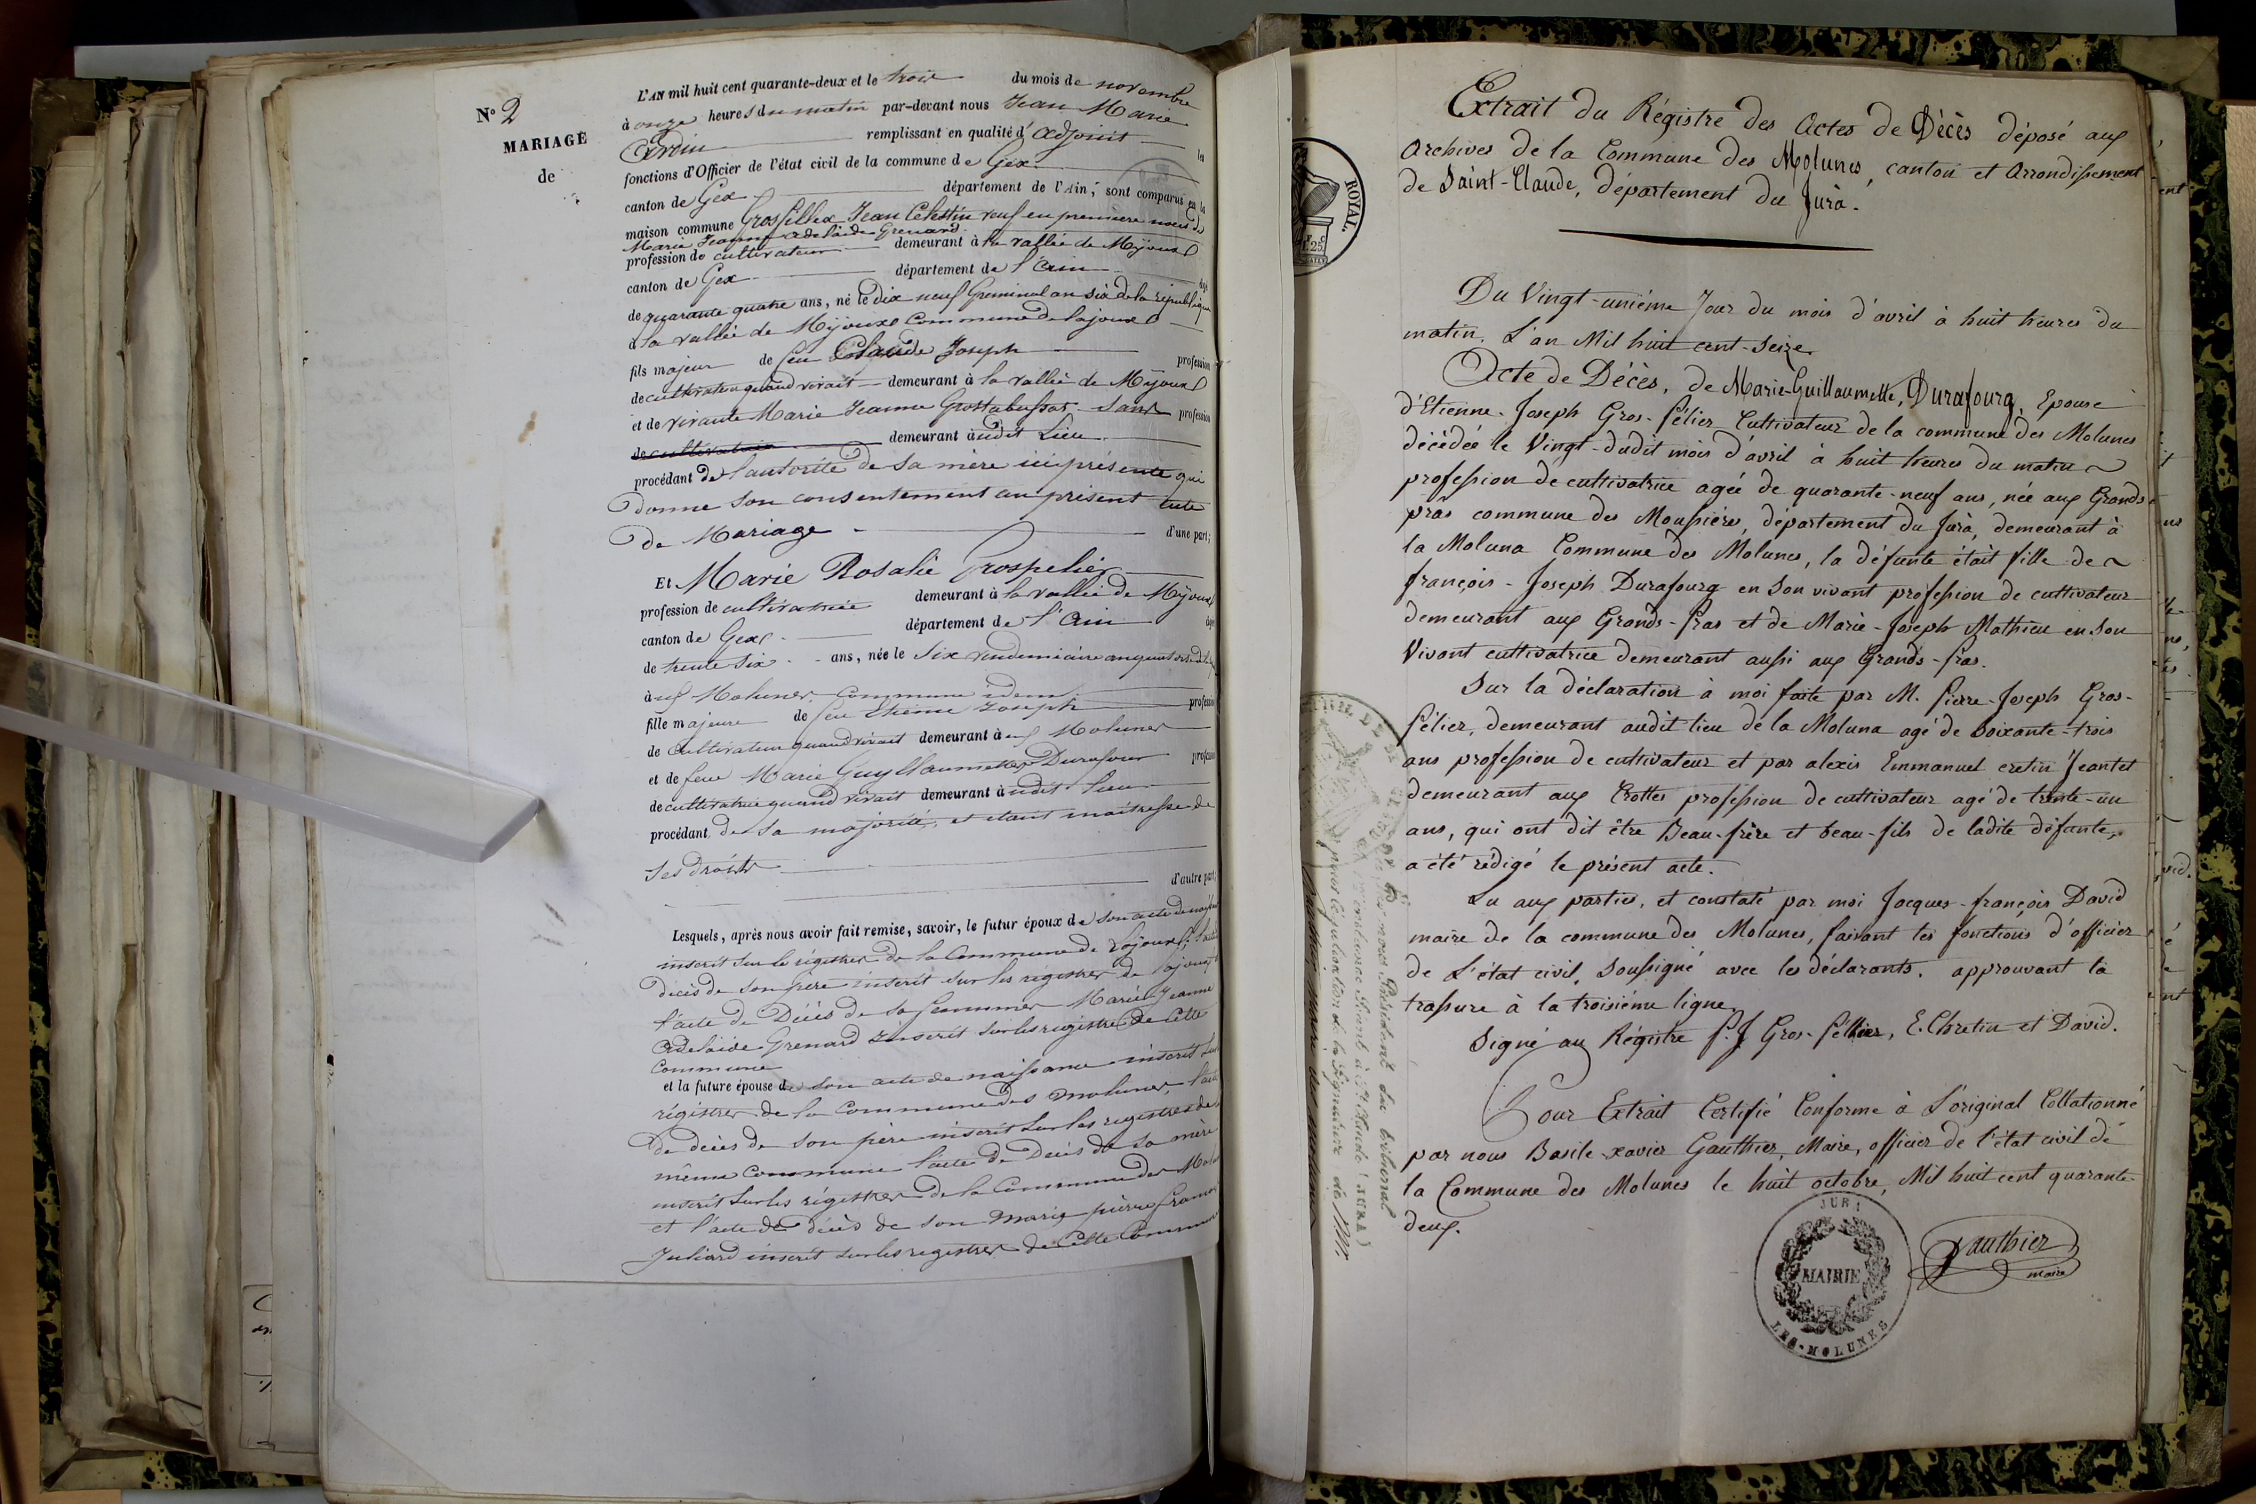 N° 2
MARIAGE
de
L'AN mil huit cent quarante-deux et le trois du mois de novembre
à onze heures du matin par-devant nous Jean Marie
remplissant en qualité d'adjoint les
fonctions d'Officier de l'état civil de la commune de Gex
canton de Gex département de l'Ain, sont comparus en la
maison commune Grosfillex Jean Célestin veuf en premiere noces de
Marie Jeanne adelaide Grenard
profession de cultivateur demeurant à la vallée de Mijoux
canton de Gex département de l'ain âgé
de quarante quatre ans, né le dix neuf Germinal an six de la republique
à la vallée de Mijoux commune de lajoux
fils majeur de feu Claude Joseph profession
de cultivateur quand vivait demeurant à la vallée de Mijoux
et de vivante Marie Jeanne Grostabussat sans profession
de cultivatrice demeurant audit Lieu
procédant de l'autorité de sa mère ici présente qui
donne son consentement au présent acte
de Mariage d'une part;
Et Marie Rosalie Grospelier
profession de cultivatrice demeurant à la vallée de Mijoux
canton de Gex département de l'Ain âgée
de trente six ans, née le six vendemiaire an quatorze
aux Molunes, commune idem
fille majeure de feu Etienne Joseph profession
de cultivateur quand vivait demeurant aux Molunes
et de feue Marie Guyllaumette Durafour profession
de cultivatrice quand vivait demeurant audit lieu
procédant de sa majorité, et étant maitresse de
ses droits
d'autre part;
Lesquels, après nous avoir fait remise, savoir, le futur époux de son acte de naissance
inscrit sur le régistres de la Commune de Lajoux, l'acte
décès de son père inscrit sur les régistres de lajoux
l'acte de Décès de sa femme Marie Jeanne
adelaide Grenard inscrit sur les registre de cette
Commune
et la future épouse de son acte de naissance inscrit sur
régistres de la commune des molunes, l'acte
de décès de son père inscrit sur les registres de
même commune l'acte de Décès de sa mère
inscrit sur les régistres de la Commune des Molunes
et l'acte de décès de son mari pierre françois
Juliard inscrit sur les registres de cette commune
ROYAL.
Extrait du Régistre des Actes de Décès déposé aux
Archives de la Commune des Molunes, canton et Arrondissement
de Saint-Claude, département du Jura.
Du Vingt-unième Jour du mois d'avril à huit heures du
matin. L'an Mil huit cent-seize.
Acte de Décès, de Marie-Guillaumette, Durafourg, Epouse
d'Etienne-Joseph Gros-félier Cultivateur de la commune des Molunes
décédée le Vingt-dudit mois d'avril à huit heures du matin
profession de cultivatrice agée de quarante-neuf ans, née aux Grands
prâs commune des Moussières, département du Jura, demeurant à
la Moluna Commune des Molunes, la défunte était fille de
françois-Joseph Durafourg en son vivant profession de cultivateur
demeurant aux Grands-pras et de Marie-Joseph Mathieu en son
Vivant cultivatrice demeurant aussi aux Grands-pras.
Sur la déclaration à moi faite par M. Pierre-Joseph Gros-
félier, demeurant audit lieu de la Moluna agé de soixante-trois
ans profession de cultivateur et par alexis Emmanuel cretin Jeantet
demeurant aux Crottes profession de cultivateur agé de trente-un
ans, qui ont dit être Beau-frère et beau-fils de ladite défunte,
a été rédigé le présent acte.
Lu aux parties, et constaté par moi Jacques-françois David
maire de la commune des Molunes, faisant les fonctions d'officier
de L'état civil, soussigné avec les déclarants. approuvant la
trassure à la troisième ligne.
Signé au Régistre P. J. Gros-fellier, E. Chretin et David.
Pour Extrait Certifié Conforme à L'original Collationné
par nous Basile-xavier Gauthier, Maire, officier de l'état civil de
la Commune des Molunes le huit octobre, Mil huit cent quarante-
deux.
JURA
MAIRIE
LES-MOLUNES
Gauthier
maire